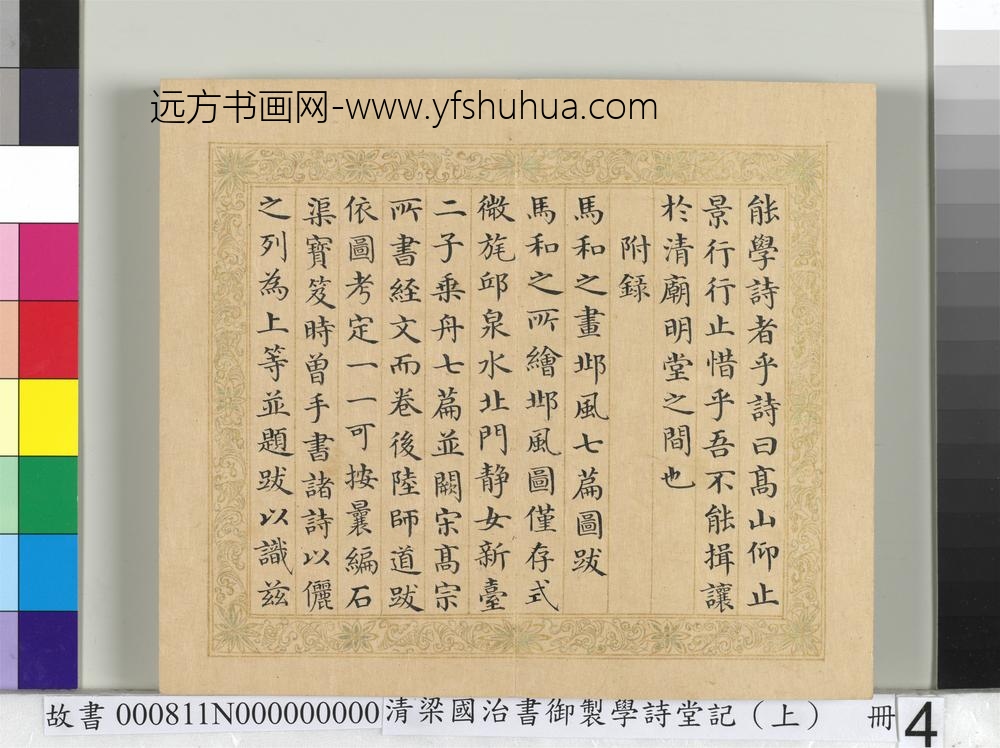 远方书画网-www.yfshuhua.com
能學詩者乎詩曰髙山仰止
景行行止惜乎吾不能揖讓
於清廟明堂之間也
附錄
馬和之畫邶風七篇圖跋
馬和之所繪邶風圖僅存式
微旄邱泉水北門静女新臺
二子乗舟七篇並闕宋髙宗
所書経文而卷後陸師道跋
依圖考定一一可按曩編石
渠寶笈時曽手書諸詩以儷
之列為上等並題跋以識兹
故書 000811N000000000 清梁國治書御製學詩堂記（上） 冊 4